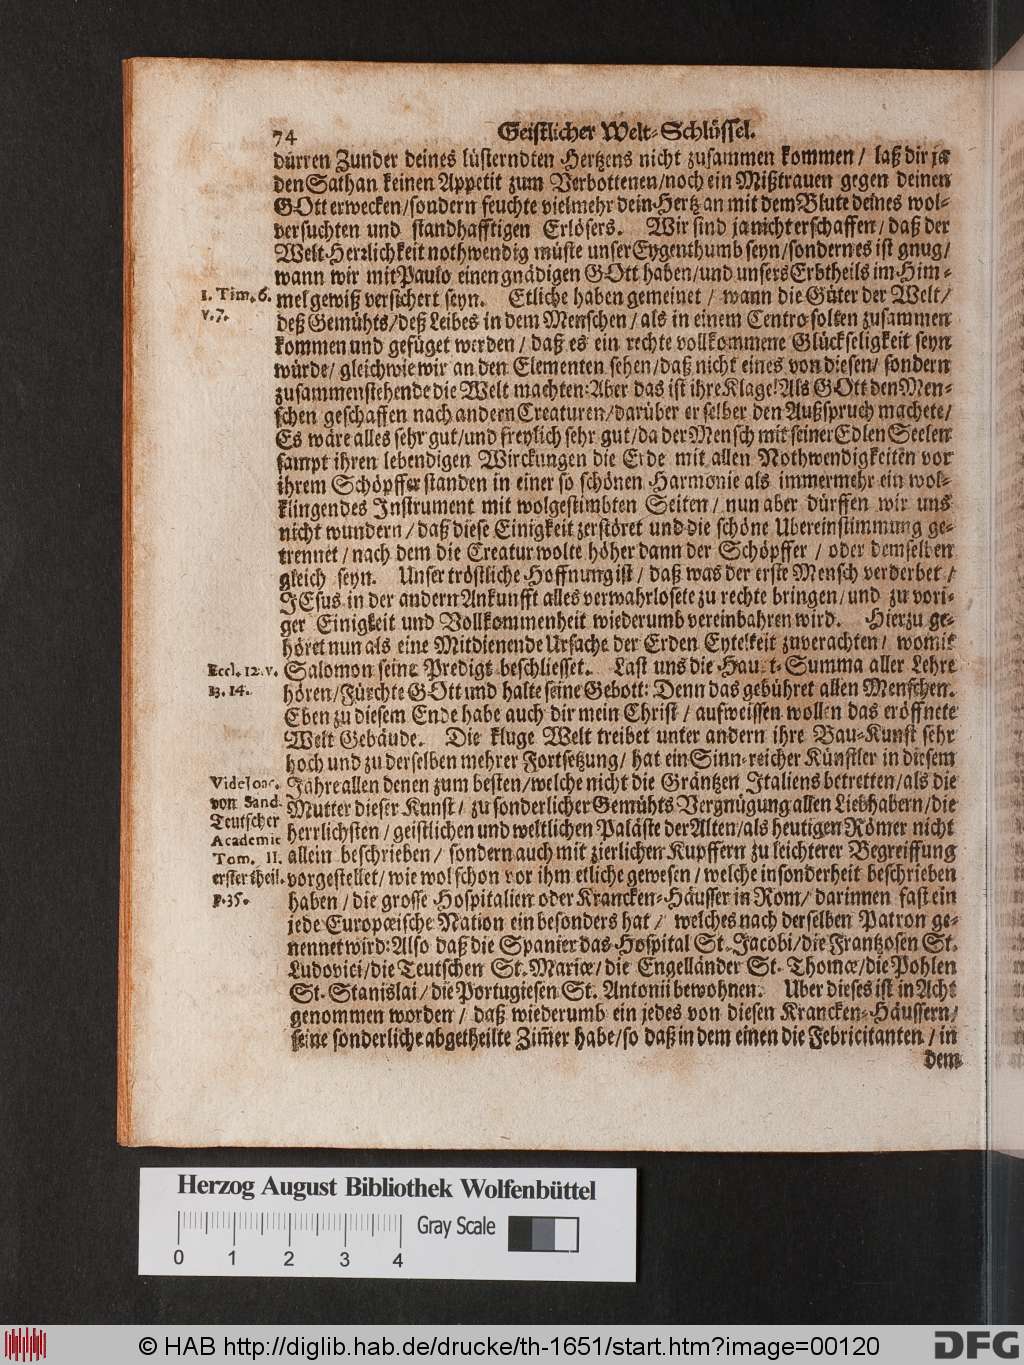 74 Geistlicher Welt-Schlüssel.
dürren Zunder deines lüsterndten Hertzens nicht zusammen kommen / laß dir ja
den Sathan keinen Appetit zum Verbottenen / noch ein Mißtrauen gegen deinen
GOtt erwecken / sondern feuchte vielmehr dein Hertz an mit dem Blute deines wol-
versuchten und standhafftigen Erlösers. Wir sind ja nicht erschaffen / daß der
Welt Herrlichkeit nothwendig müste unser Eygenthumb seyn / sondern es ist gnug /
wann wir mit Paulo einen gnädigen GOtt haben / und unsers Erbtheils im Him-
1. Tim. 6. mel gewiß versichert seyn. Etliche haben gemeinet / wann die Güter der Welt /
v. 7. deß Gemühts / deß Leibes in dem Menschen / als in einem Centro solten zusammen
kommen und gefüget werden / daß es ein rechte vollkommene Glückseligkeit seyn
würde / gleich wie wir an den Elementen sehen / daß nicht eines von diesen / sondern
zusammenstehende die Welt machten: Aber das ist ihre Klage! Als GOtt den Men-
schen geschaffen nach andern Creaturen / darüber er selber den Außspruch machete /
Es wäre alles sehr gut / und freylich sehr gut / da der Mensch mit seiner Edlen Seelen
sampt ihren lebendigen Wirckungen die Erde mit allen Nothwendigkeiten vor
ihrem Schöpffer standen in einer so schönen Harmonie als immermehr ein wol-
klingendes Instrument mit wolgestimbten Seiten / nun aber dürffen wir uns
nicht wundern / daß diese Einigkeit zerstöret und die schöne Ubereinstimmung ge-
trennet / nach dem die Creatur wolte höher dann der Schöpffer / oder demselben
gleich seyn. Unser tröstliche Hoffnung ist / daß was der erste Mensch verderbet /
JEsus in der andern Ankunfft alles verwahrlosete zu rechte bringen / und zu vori-
ger Einigkeit und Vollkommenheit wiederumb vereinbahren wird. Hierzu ge-
höret nun als eine Mitdienende Ursache der Erden Eytelkeit zuverachten / womit
Eccl. 12. v. Salomon seine Predigt beschliesset. Last uns die Haupt-Summa aller Lehre
13. 14. hören / Fürchte GOtt und halte seine Gebott: Denn das gebühret allen Menschen.
Eben zu diesem Ende habe auch dir mein Christ / aufweissen wollen das eröffnete
Welt Gebäude. Die kluge Welt treibet unter andern ihre Bau-Kunst sehr
hoch und zu derselben mehrer Fortsetzung / hat ein Sinn-reicher Künstler in diesem
Vide Joac. Jahre allen denen zum besten / welche nicht die Gräntzen Italiens betretten / als die
von Sand. Mutter dieser Kunst / zu sonderlicher Gemühts Vergnügung allen Liebhabern / die
Teutscher herrlichsten / geistlichen und weltlichen Paläste der Alten / als heutigen Römer nicht
Academie
Tom. II. allein beschrieben / sondern auch mit zierlichen Kupffern zu leichterer Begreiffung
erster theil. vorgestellet / wie wol schon vor ihm etliche gewesen / welche insonderheit beschrieben
p. 35. haben / die grosse Hospitalien oder Krancken-Häusser in Rom / darinnen fast ein
jede Europæische Nation ein besonders hat / welches nach derselben Patron ge-
nennet wird: Also daß die Spanier das Hospital St. Jacobi / die Frantzosen St.
Ludovici / die Teutschen St. Mariæ / die Engelländer St. Thomæ / die Pohlen
St. Stanislai / die Portugiesen St. Antonii bewohnen. Uber dieses ist in Acht
genommen worden / daß wiederumb ein jedes von diesen Krancken-Häussern /
seine sonderliche abgetheilte Zim̃er habe / so daß in dem einen die Febricitanten / in
dem
Herzog August Bibliothek Wolfenbüttel
Gray Scale
0 1 2 3 4
© HAB http://diglib.hab.de/drucke/th-1651/start.htm?image=00120
DFG